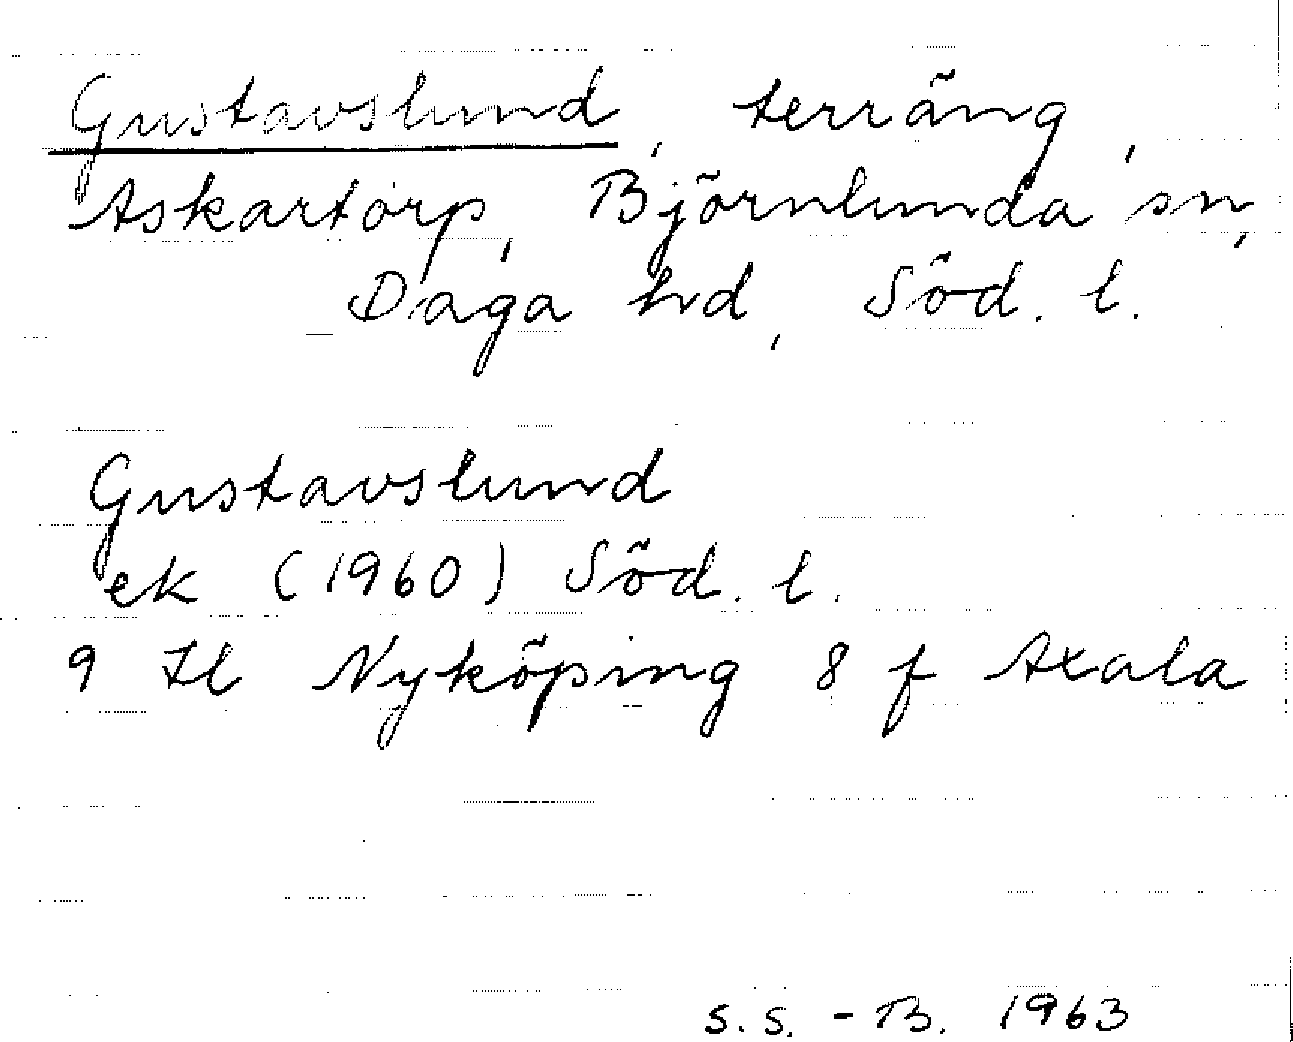 Gustavslund, terräng,
Askartorp, Björnlunda sn,
Daga hd, Söd. l.
Gustavslund
ek (1960) Söd. l.
9 H Nyköping 8 f Axala
S.S. - B. 1963